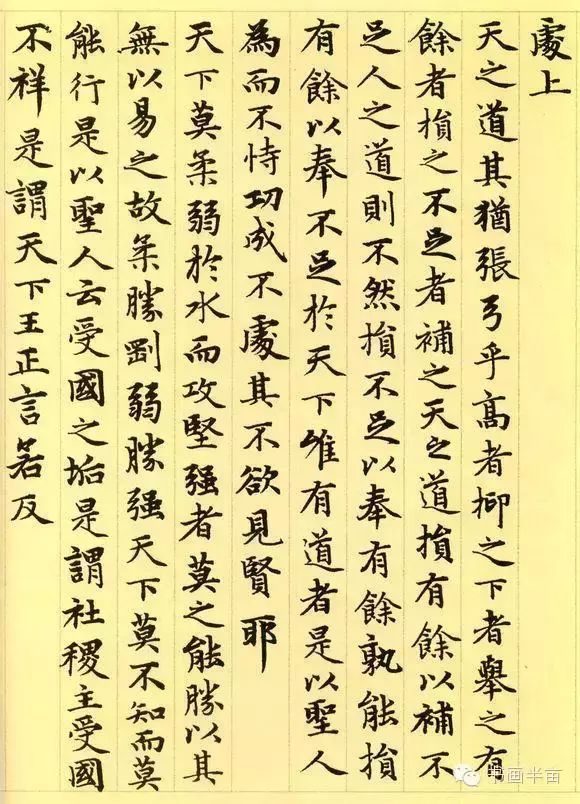 處上
天之道其猶張弓乎高者抑之下者舉之有
餘者損之不足者補之天之道損有餘以補不
足人之道則不然損不足以奉有餘孰能損
有餘以奉不足於天下唯有道者是以聖人
為而不恃功成不處其不欲見賢耶
天下莫柔弱於水而攻堅强者莫之能勝以其
無以易之故柔勝剛弱勝强天下莫不知而莫
能行是以聖人云受國之垢是謂社稷主受國
不祥是謂天下王正言若反
书画半亩